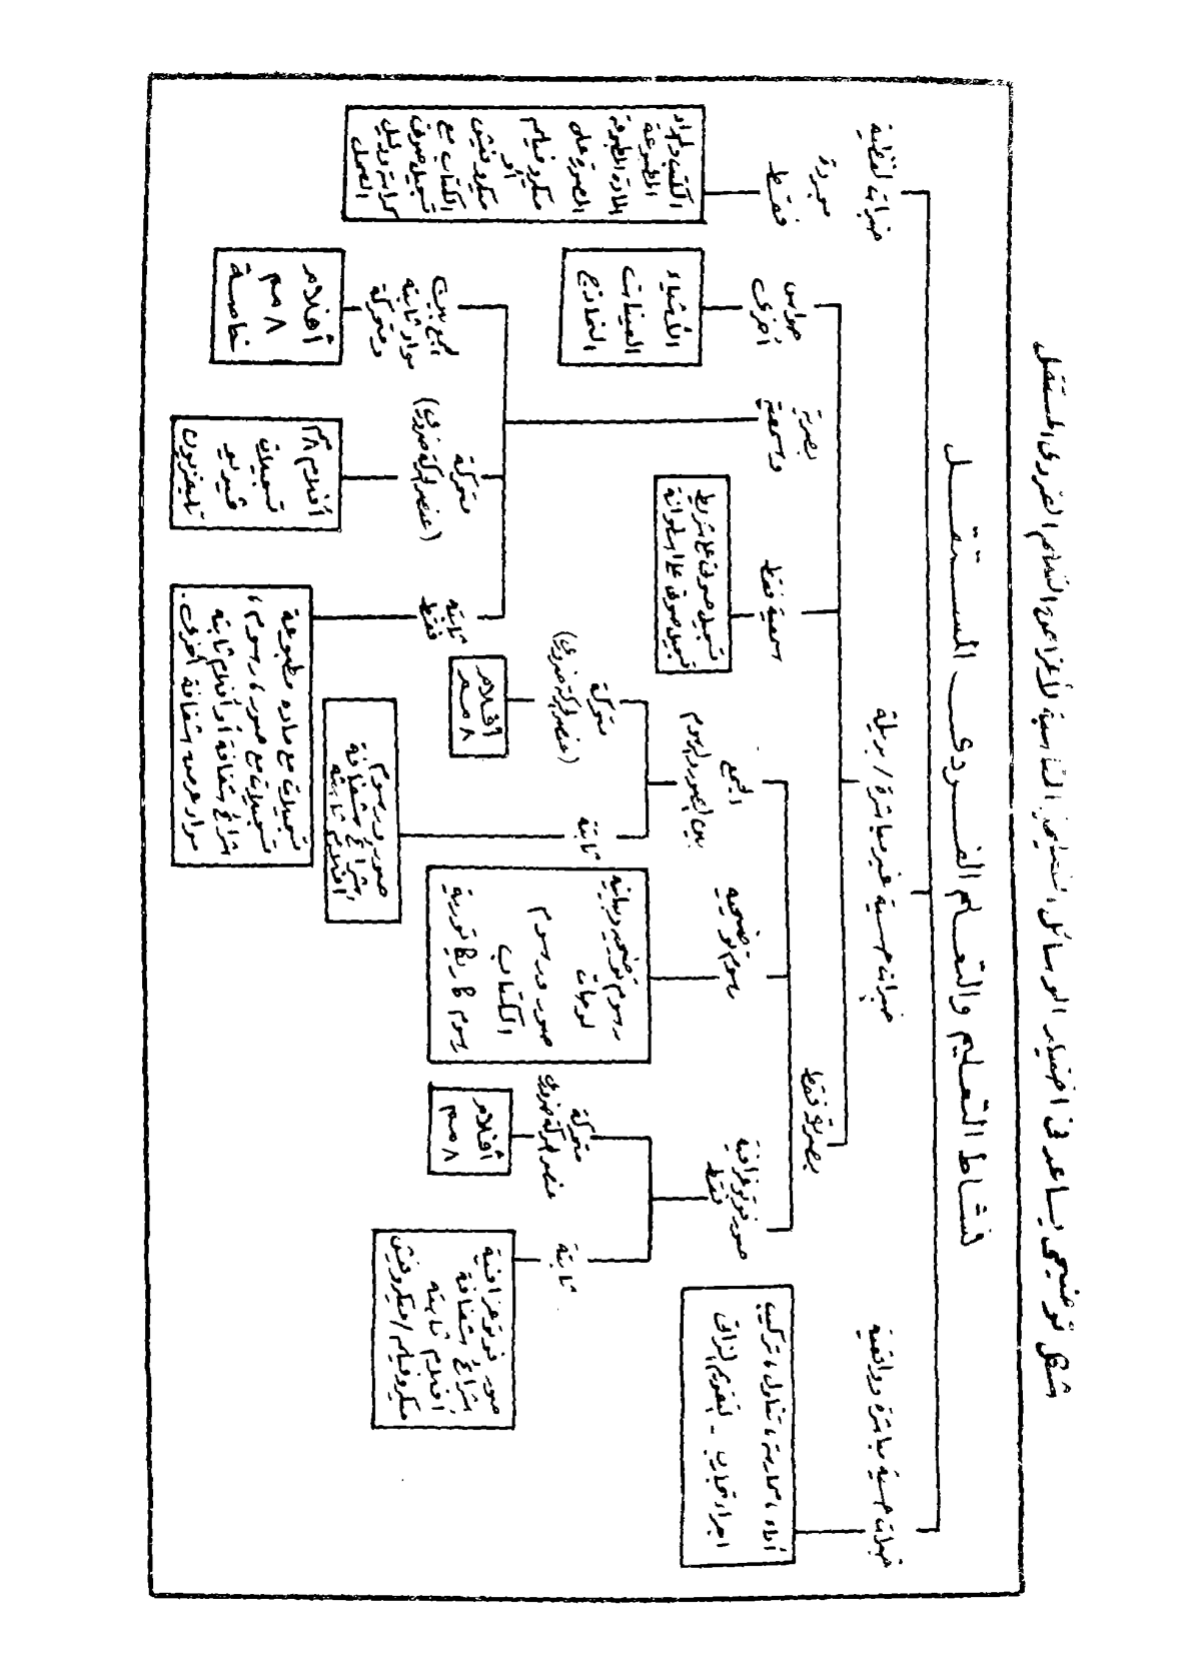 شكل توضيحى يساعد فى اختيار الوسائل التعليمية المناسبة لأغراض التعلم الفردى المستقل
نشاط التعليم والتعلم الفردى المستقل
خبرات حسية مباشرة وواقعية
أداء، ممارسة، تناول، تركيب
اجراء تجارب - لتقويم الذاتى
خبرات حسية غير مباشرة / بديلة
بصرية فقط
صور فوتوغرافية
فقط
ثابتة
صور فوتوغرافية
شرائح شفافة
أفلام ثابته
ميكروفيلم/ميكروفيش
متحركة
عنصر الحركة ضرورى
أفلام
٨ مم
رسوم توضيحيه
رسوم توضيحيه وبيانيه
لوحات
صور ورسوم
الكتاب
رسوم كاريكاتورية
الجمع
بين الصور والرسوم
ثابتة
صور ورسوم
شرائح شفافة
أفلام ثابته
متحركة
(عنصر الحركة ضرورى)
أفلام
٨ مم
سمعية فقط
تسجيل صوتى على شريط
تسجيل صوتى على اسطوانة
بصرية
وسمعية
ثابته
فقط
تسجيلات مع ماده مطبوعة
تسجيلات مع صور، رسوم،
شرائح شفافة أو أفلام ثابته
مواد عرض شفافة أخرى.
متحركة
(عنصر الحركة ضرورى)
أفلام ٨ مم
تسجيلات
فيديو
تليفزيون
الجمع بين
مواد ثابته
ومتحركة
أفلام
٨ مم
خاصة
حواس
أخرى
الأشياء
العينات
النماذج
خبرات لفظية
مجردة
فقط
الكتب والمواد
المطبوعة
المادة المطبوعة
المصورة على
ميكروفيلم
أو
ميكروفيش
الكتاب مع
تسجيل صوتى
العمل